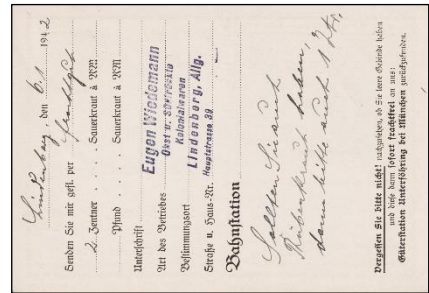 Lindenberg, den 6.1. 1942
Senden Sie mir gefl. per
2 Zentner . . . . Sauerkraut à RM
Pfund . . . . Sauerkraut à RM
Unterschrift Eugen Wiedemann
Art des Betriebes Obst u. Südfrüchte
Kolonialwaren
Bestimmungsort Lindenberg, Allg.
Straße u. Haus-Nr. Hauptstrasse 39
Bahnstation
Sollten Sie auch
Rübenkraut haben,
dann bitte auch 1 Ztr.
Vergessen Sie bitte nicht! nachzusehen, ob Sie leere Gebinde haben
und diese dann sofort frachtfrei an uns:
Güterstation Unterföhring bei München zurückzusenden.